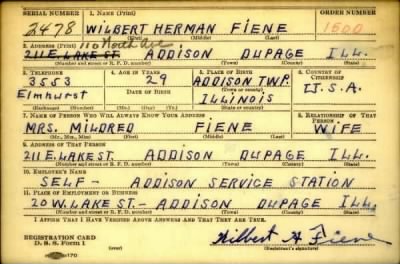 SERIAL NUMBER 1. NAME (Print) ORDER NUMBER
2478 WILBERT HERMAN FIENE 1500
(First) (Middle) (Last)
2. ADDRESS (Print) 110 North Ave
211 E. LAKE ST. ADDISON DUPAGE ILL.
(Number and street or R. F. D. number) (Town) (County) (State)
3. TELEPHONE 4. AGE IN YEARS 5. PLACE OF BIRTH 6. COUNTRY OF CITIZENSHIP
3553 29 ADDISON TWP.
DATE OF BIRTH (Town or county)
Elmhurst ILLINOIS U.S.A.
(Exchange) (Number) (Mo.) (Day) (Yr.) (State or country)
7. NAME OF PERSON WHO WILL ALWAYS KNOW YOUR ADDRESS 8. RELATIONSHIP OF THAT PERSON
MRS. MILDRED FIENE WIFE
(Mr., Mrs., Miss) (First) (Middle) (Last)
9. ADDRESS OF THAT PERSON
211 E. LAKE ST. ADDISON DUPAGE ILL.
(Number and street or R. F. D. number) (Town) (County) (State)
10. EMPLOYER'S NAME
SELF - ADDISON SERVICE STATION
11. PLACE OF EMPLOYMENT OR BUSINESS
20 W. LAKE ST. - ADDISON DUPAGE ILL.
(Number and street or R. F. D. number) (Town) (County) (State)
I AFFIRM THAT I HAVE VERIFIED ABOVE ANSWERS AND THAT THEY ARE TRUE.
REGISTRATION CARD
D. S. S. Form 1 Wilbert H Fiene
(Registrant's signature)